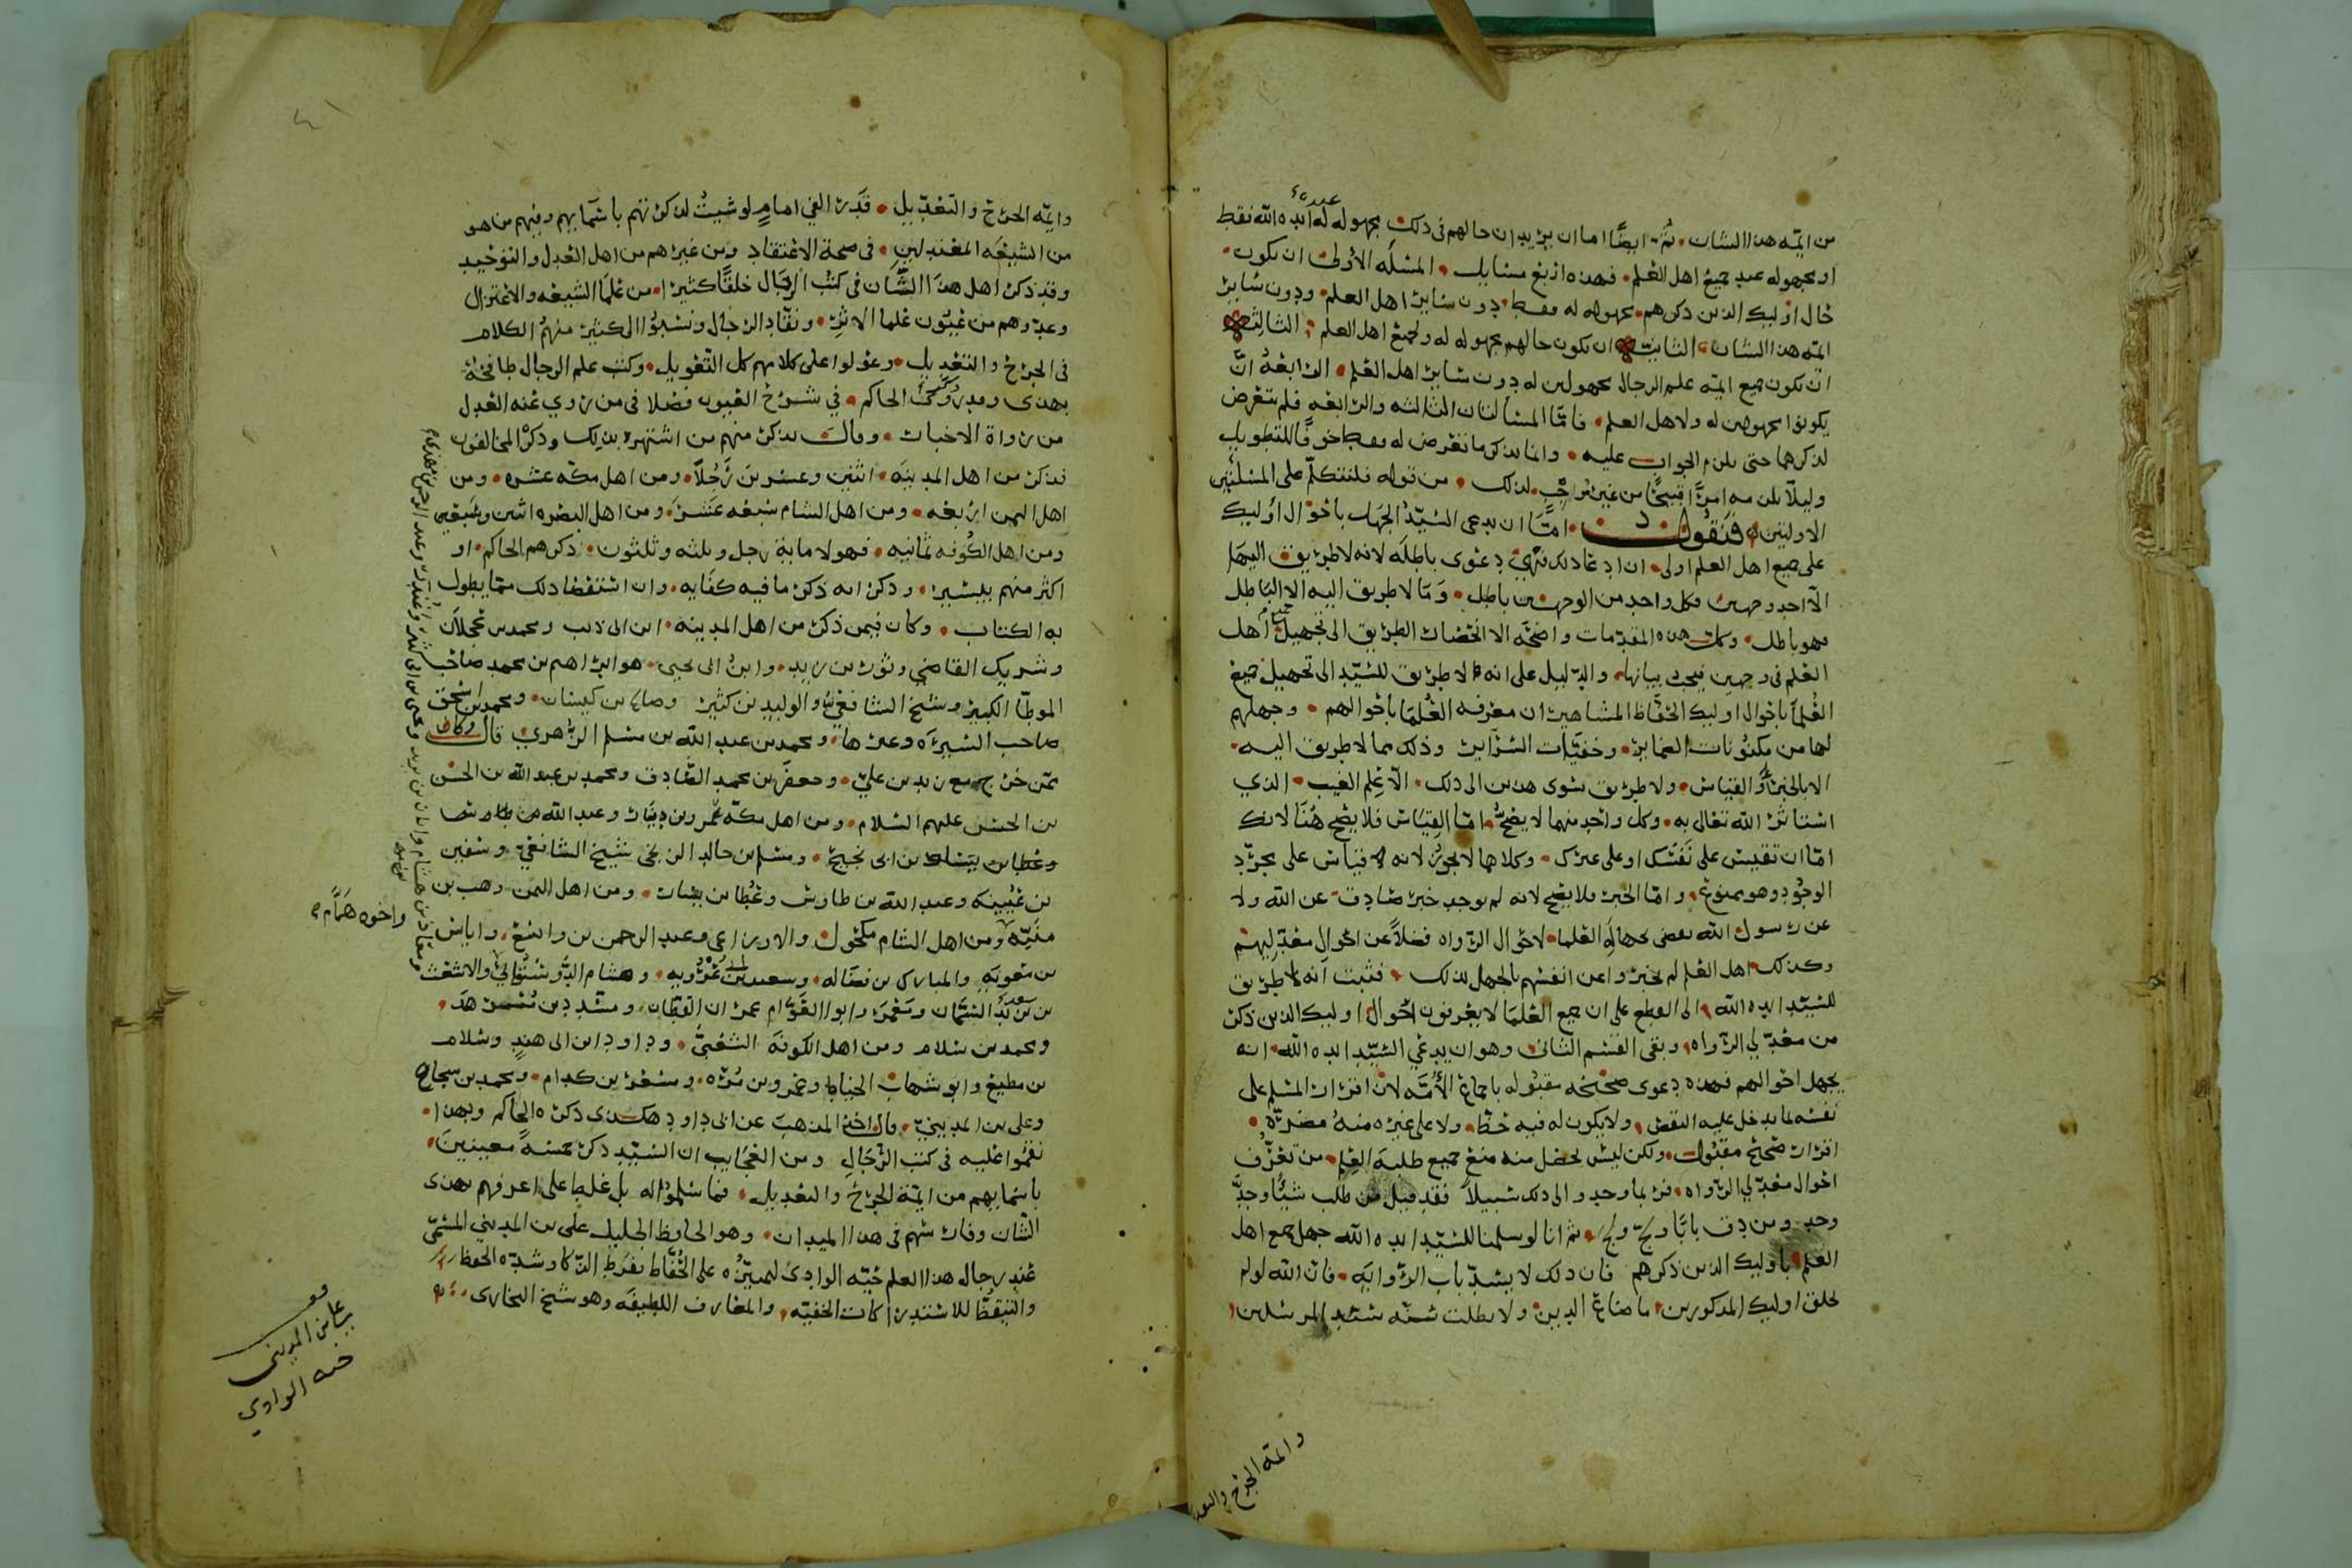 من ايمه هذا الشان ثم ايضا اما ان يريد ان حالهم في ذلك مجهوله له ايده الله فقط
او مجهوله عند جميع اهل العلم فهذه اربع مسايل المسله الاولى ان يكون
حال اوليك الذين ذكرهم مجهوله له فقط دون ساير اهل العلم ودون ساير
ايمه هذا الشان الثانيه ان يكون حالهم مجهوله له ولجميع اهل العلم الثالثه
ان يكون جميع ايمه علم الرجال مجهولين له دون ساير اهل العلم الرابعه ان
يكونوا مجهولين له ولاهل العلم فاما المسألتان الثالثه والرابعه فلم يتعرض
لذكرهما حتى يلزم الجواب عليه وانما نذكر ما تعرض له فقط خوفا للتطويل
وليلا يلزمه امرا قبيحا من غير لذلك من قوله فلنتكلم على المسلتين
الاوليتين فنقول اما ان يدعى السيد الجهل باحوال اوليك
على جميع اهل العلم اولى ان ادعا ذلك فهي دعوى باطله لانه لا طريق اليها
الا احد وجهين وكل واحد من الوجهين باطل وما لا طريق اليه الا الباطل
فهو باطل وكل هذه المقدمات واضحه الا انحصار الطريق الى تجهيل جميع اهل
العلم في وجهين فيجب بيانها والدليل على انه لا طريق للسيد الى تجهيل جميع
العلما باحوال اوليك الحفاظ المشاهير ان معرفه العلما باحوالهم وجهلهم
لها من مكنونات الضماير وخفيات السراير وذلك مما لا طريق اليه
الا بالخبر او القياس ولا طريق سوى هذين الى ذلك الا علم الغيب الذي
استاثر الله تعالى به وكل واحد منهما لا يصح اما القياس فلا يصح هنا لانك
اما ان تقيس على نفسك او على غيرك وكلاهما لا يجوز لانه لا قياس على مجرد
الوجود وهو ممنوع واما الخبر فلا يصح لانه لم يوجد خبر صادق عن الله ولا
عن رسول الله يقضي بجهاله العلما لاحوال الرواه فضلا عن احوال معدليهم
وكذلك اهل العلم لم يخبروا عن انفسهم بالجهل لذلك فثبت انه لا طريق
للسيد ايده الله الى القطع على ان جميع العلما لا يعرفون احوال اوليك الذين ذكر
من معدلي الرواه وبقى القسم الثاني وهو ان يدعي السيد ايده الله انه
يجهل احوالهم فهذه دعوى صحيحه مقبوله باجماع الأمه لان اقرار المسلم على
نفسه لما يدخل عليه النقص ولا يكون له فيه حظ ولا على غيره منه مضره
اقرار صحيح مقبول ولكن ليس يحصل منه منع جميع طلبه العلم من تعرف
احوال معدلي الرواه فربما وجدوا الى ذلك سبيلا فقد قيل من طلب شيا وجد
وجد ومن دق بابا ولج ولج ثم انا لو سلمنا للسيد ايده الله جهل جميع اهل
العلم باوليك الذين ذكرهم فان ذلك لا يسد باب الروايه فان الله لو لم
يخلق اوليك المذكورين ما ضاع الدين ولا بطلت سنه سيد المرسلين
وايمة الجرح والتعد
٤١
وايمه الجرح والتعديل قدر الفي امام لو شيت لذكرتهم باسمايهم وفيهم من هو
من الشيعه المعتدلين في صحة الاعتقاد ومن غيرهم من اهل العدل والتوحيد
وقد ذكر اهل هذا الشان في كتب الرجال خلقا كثيرا من علما الشيعه والاعتزال
وعدوهم من عيون علما الاثر ونقاد الرجال ونسبوا الى كثير منهم الكلام
في الجرح والتعديل وعولوا على كلامهم كل التعويل وكتب علم الرجال طافحه
بهذى وقد ذكر الحاكم في شرح العيون فضلا في من روي عنه العدل
من رواة الاخبار وقال نذكر منهم من اشتهر بذلك وذكر المخالفون
فذكر من اهل المدينه اثنين وعشرين رجلا ومن اهل مكه عشره ومن
اهل اليمن اربعه ومن اهل الشام سبعه عشر ومن اهل البصره اثنين وسبعين
ومن اهل الكوفه ثمانيه فهولا ماية رجل وثلثه وثلثون ذكرهم الحاكم او
اكثر منهم بيسير وذكر انه ذكر ما فيه كفايه وان استقصا ذلك مما يطول
به الكتاب وكان فيمن ذكر من اهل المدينه ابن ابي ذيب ومحمد بن عجلان
وشريك القاضي وثور بن زيد وابن ابي يحيى هو ابراهيم بن محمد صاحب
الموطا الكبير وشيخ الشافعي والوليد بن كثير وصالح بن كيسان ومحمد بن اسحق
صاحب السيره وغيرها ومحمد بن عبد الله بن مسلم الزهري قال وكان
ممن خرج مع زيد بن علي وجعفر بن محمد الصادق ومحمد بن عبد الله بن الحسن
بن الحسن عليهم السلام ومن اهل مكه عمرو بن دينار وعبد الله
بن ابي نجيح ومسلم بن خالد الزنجي شيخ الشافعي وسفين
بن عيينه وعبد الله بن طاوس وعطا بن يسار ومن اهل اليمن وهب بن
منبه ومن اهل الشام مكحول والاوزاعي وعبد الرحمن بن واياس
بن معويه والمبارك بن فضاله وسعيد بن ابي عروبه وهشام الدستوائي والاشعث
بن سعيد السمان ومعمر وابو العوام عمران القطان ومسدد بن مسرهد
ومحمد بن سلام ومن اهل الكوفه الشعبي وداود ابن ابي هند وسلام
بن مطيع وابو شهاب الحناط وعمرو بن مره ومسعر بن كدام ومحمد بن شجاع
وعلى بن المديني وقال اخذ المذهب عن ابي داود هكذى ذكره الحاكم وبهذا
نقموا عليه في كتب الرجال ومن العجايب ان السيد ذكر خمسة معينين
باسمايهم من ايمة الجرح والتعديل فما سلموا له بل غلط على اعرفهم بهذى
الشان وفارسهم في هذا الميدان وهو الحافظ الجليل على بن المديني المسمى
عند رجال هذا العلم حيه الوادى لتميزه على الحفاظ بفرط الذكا وشده الحفظ
والتيقظ للاستدراكات الخفيه والمعارف اللطيفه وهو شيخ البخاري
واخوه همام
على بن المديني
حيه الوادي